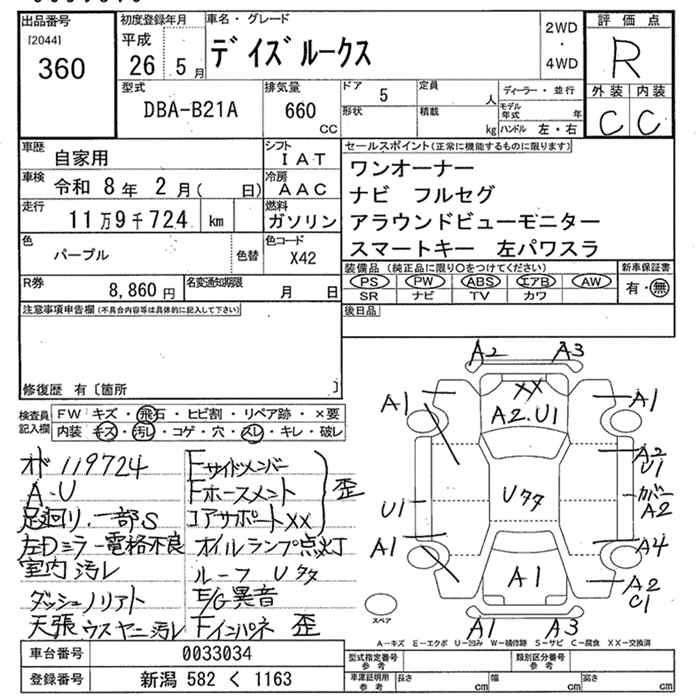 出品番号
[2044]
360
初度登録年月
平成
26 5月
車名・グレード
デイズルークス
2WD
・
4WD
評価点
R
外装 内装
C C
型式
DBA-B21A
排気量
660
CC
ドア 5
形状
定員 人
積載 kg
ディーラー・並行
モデル年式 年
ハンドル 左・右
車歴
自家用
シフト
I A T
車検
令和 8年 2月( 日)
冷房
A A C
走行
11万9千724 km
燃料
ガソリン
色
パープル
色替
色コード
X42
R券
8,860円
名変通知期限
月 日
セールスポイント(正常に機能するものに限ります)
ワンオーナー
ナビ フルセグ
アラウンドビューモニター
スマートキー 左パワスラ
装備品(純正品に限り○をつけてください)
PS PW ABS エアB AW
SR ナビ TV カワ
新車保証書
有・無
後日品
注意事項申告欄(不具合内容等は具体的に記入して下さい)
修復歴 有〔箇所 〕
検査員記入欄
FW キズ・飛石・ヒビ割・リペア跡・×要
内装 キズ・汚レ・コゲ・穴・スレ・キレ・破レ
オド 119724
A・U
足廻り、一部S
左Dミラー電格不良
室内汚レ
ダッシュノリアト
天張ウスヤニ汚レ
Fサイドメンバー
Fホースメント
コアサポートXX
歪
オイルランプ点灯
ルーフ Uタタ
E/G異音
Fインパネ 歪
A2 A3
A1
XX
A2.U1
A1
A2
U1
U1
Uタタ
カバー
A2
A1
A4
A1
A2
C1
A1 A3
スペア
A-キズ E-エクボ U-凹み W-補修跡 S-サビ C-腐食 XX-交換済
車台番号 0033034
登録番号 新潟 582 く 1163
型式指定番号
参考
類別区分番号
参考
車庫証明用
参考
長さ cm
幅 cm
高さ cm